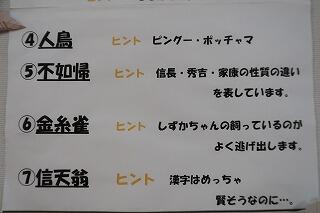 ④人鳥　ヒント　ピングー・ポッチャマ
⑤不如帰　ヒント　信長・秀吉・家康の性質の違い
を表しています。
⑥金糸雀　ヒント　しずかちゃんの飼っているのが
よく逃げ出します。
⑦信天翁　ヒント　漢字はめっちゃ
賢そうなのに…。